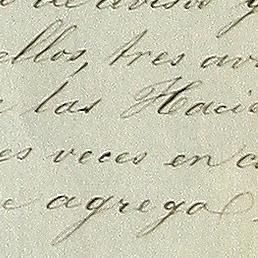 de avisar y
ellos, tres av
a las Haci
es veces en c
e agrega